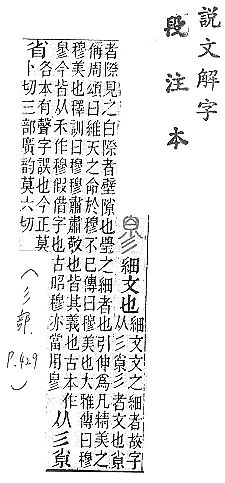 說文解字
段注本
㣎
細文也
細文文之細者故字
从彡𡭽彡者文也𡭽
者際見之白際者壁隙也壁之細者也引伸爲凡精美之
偁周頌曰維天之命於穆不巳傳曰穆美也大雅傳曰穆
穆美也釋訓曰穆穆肅肅敬也皆其義也古本作
㣎今皆从禾作穆假借字也古昭穆亦當用㣎
从彡𡭽
省
各本有聲字誤也今正莫
卜切三部廣韵莫六切
(彡部
P.429)